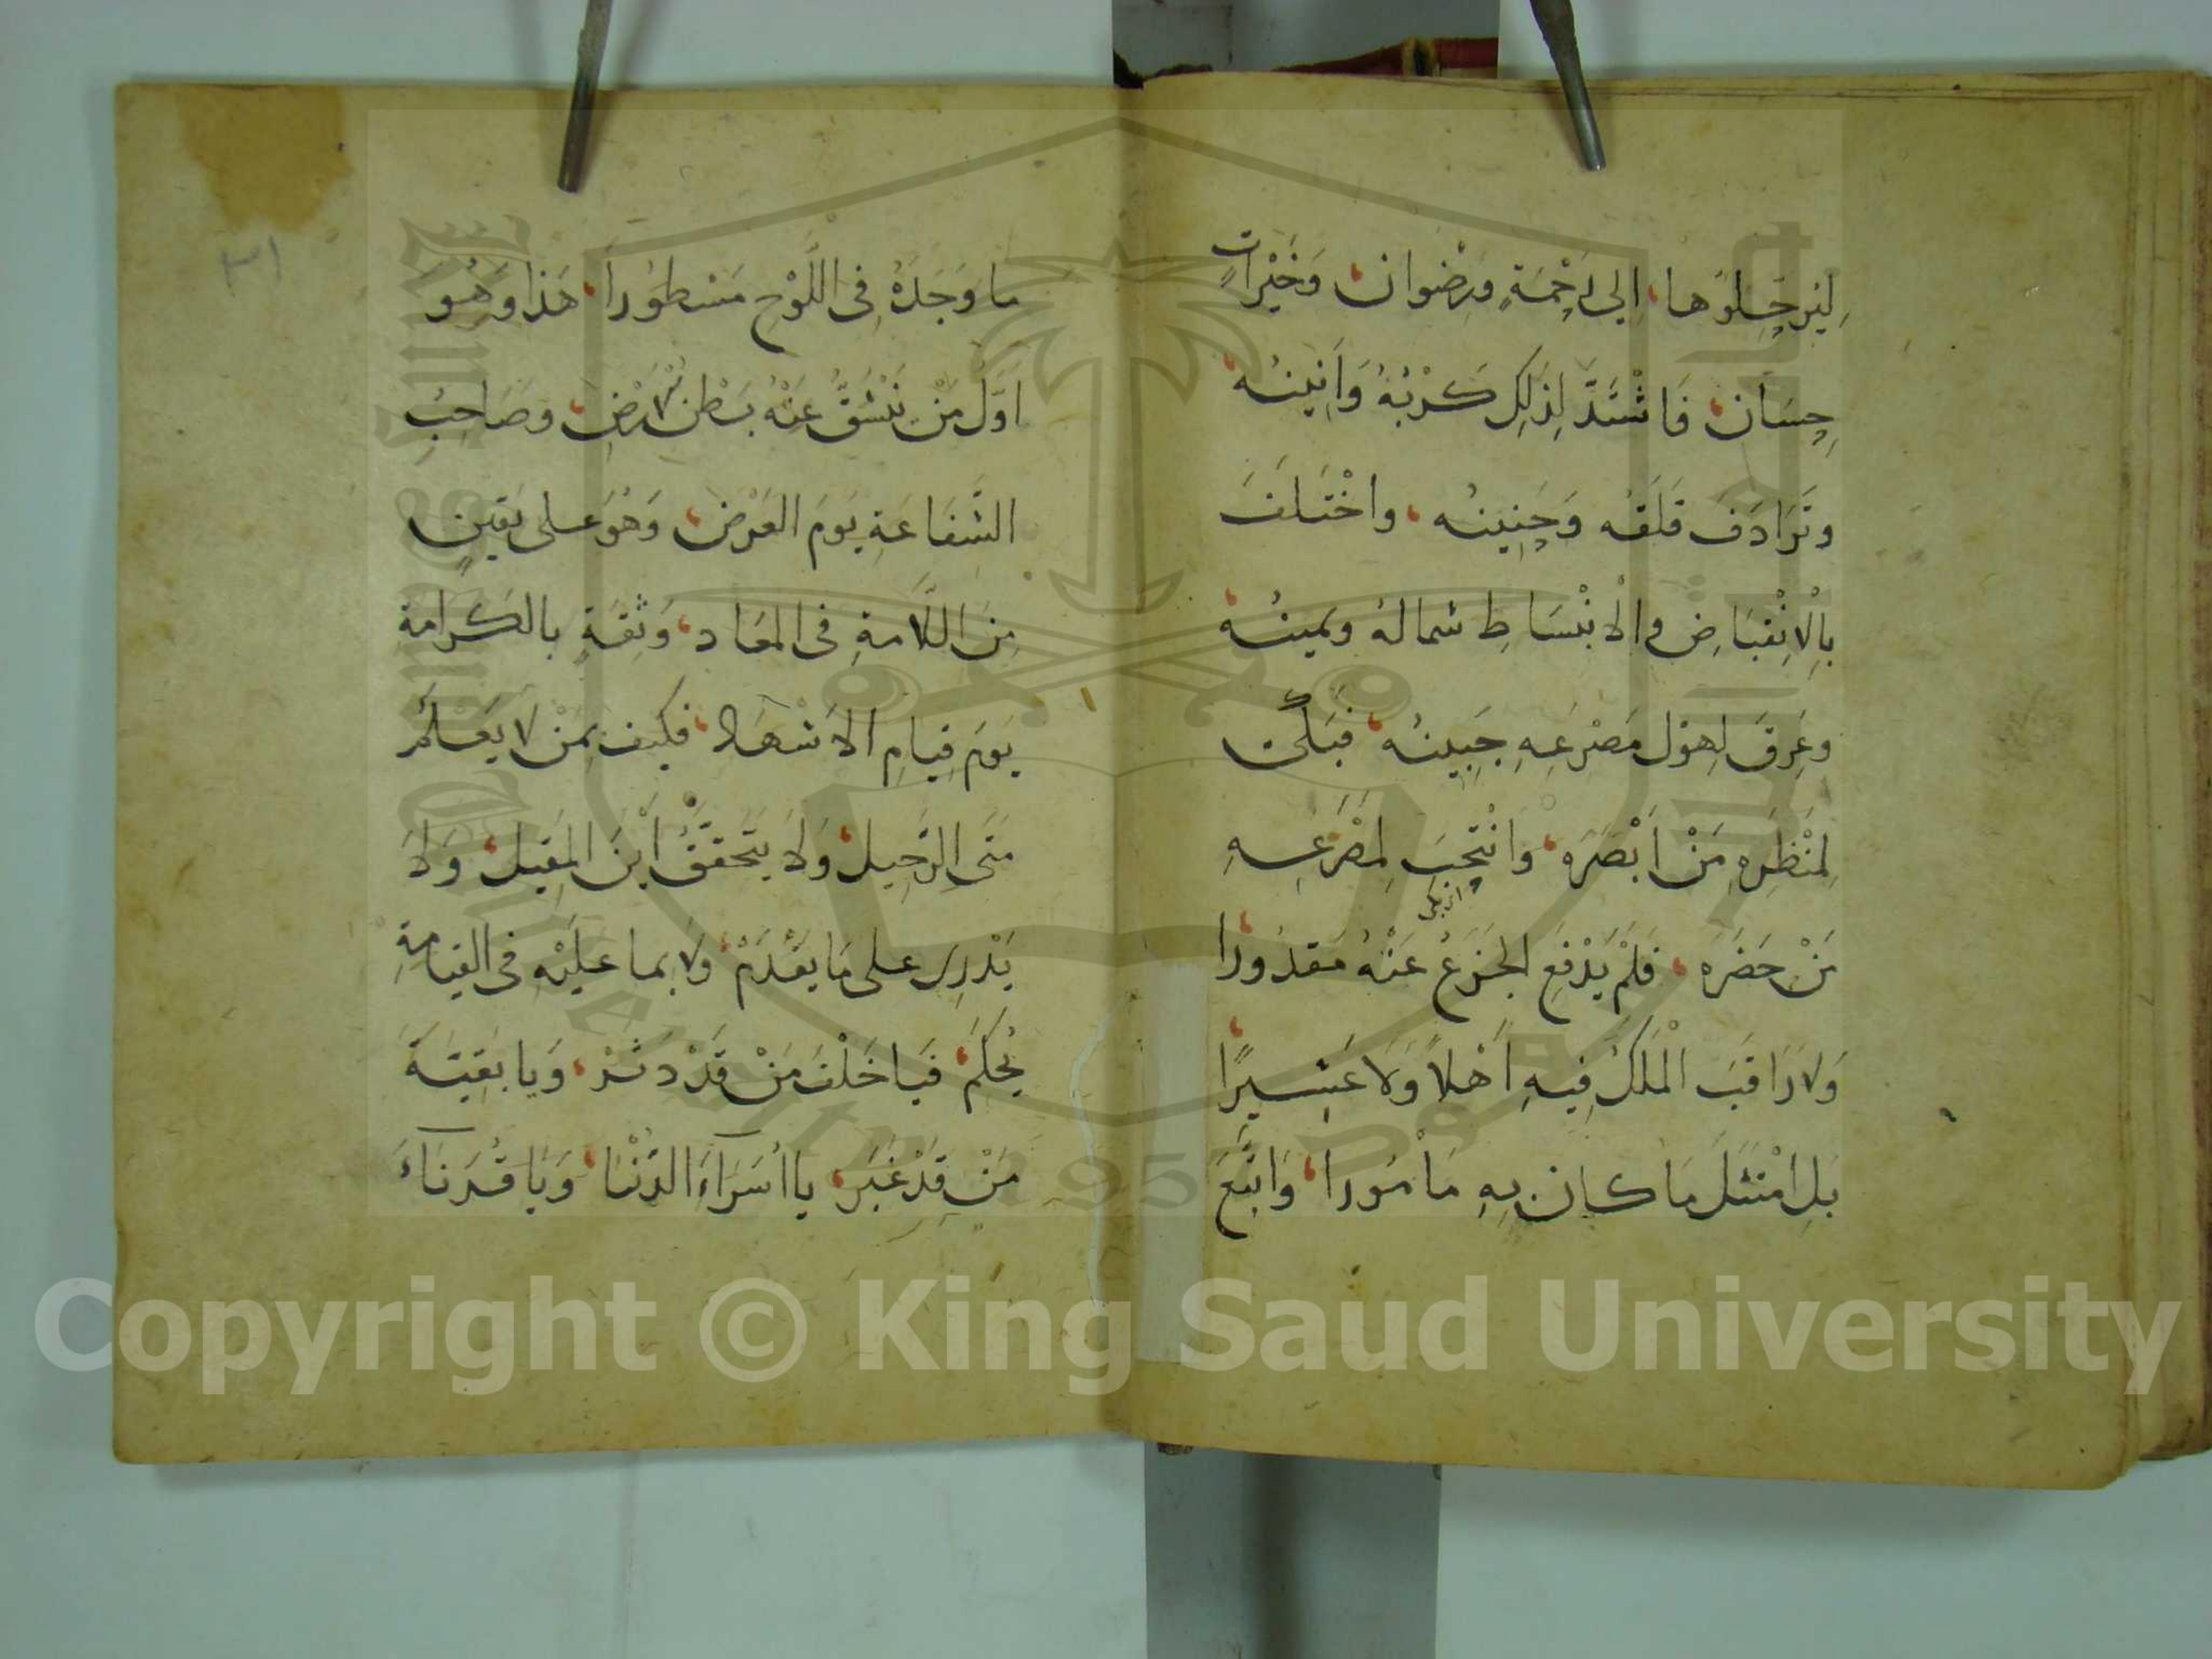 لِيُرَحِّلُوهَا، اِلَى رَحْمَةٍ وَرِضْوَان، وَخَيْرَاتٍ
حِسَان، فَاشْتَدَّ لِذَلِكَ كَرْبُهُ وَاَنِينُه،
وَتَرَادَفَ قَلَقُه وَحَنِينُه، وَاخْتَلَفَ
بِالْاِنْقِبَاضِ وَالْاِنْبِسَاطِ شمالهُ ويمينُه،
وعَرِقَ لِهَوْلِ مَصْرَعِهِ جَبِينُه، فَبَكَى
لِمَنْظَرِهِ مَنْ اَبْصَرَه، وَانْتَحَبَ لِمَصْرَعِهِ
مَنْ حَضَرَه، فَلَمْ يَدْفَعِ الْجَزَعُ عَنْهُ مَقدُورا،
وَلَا رَاقَبَ الْمَلَكُ فِيهِ اَهْلاً وَلَا عَشِيرًا،
بَلِ امْتَثَلَ مَا كان بِهِ مَأمُورا، وَاتَّبَعَ
ما وَجَدَهُ فِى اللَّوْحِ مَسْطُورَا، هَذَا وَهُوَ
اَوَّلُ مَنْ يَنْشَقُّ عَنْهُ بَطْنُ الْاَرْضِ، وصَاحِبُ
الشَّفَاعَةِ يَوْمَ العَرْض، وَهُوَ على يَقِينٍ
مِنَ السَّلَامةِ فى المعَاد، وَثِقَةٍ بالكَرامةِ
يَومَ قِيامِ الاَشْهَاد، فكَيفَ بِمَنْ لَا يَعْلَمُ
مَتَى الرَّحِيل، وَلَا يَتَحَقَّقُ اَيْنَ المَقِيل، وَلَا
يَدْرِى على مَا يَقْدَمْ، ولا بما عَلَيْهِ فى القِيامةِ
يُحْكَمْ، فَيَا خَلَفَ مَنْ قَدْ دَثَرْ، وَيا بَقِيَّةَ
مَنْ قَدْ غَبَر، يا اُسَرَآءَ الدُّنْيَا، وَيَا قُرَنَآءَ
٣١
Copyright © King Saud University